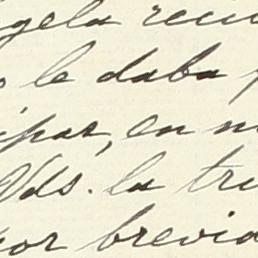 gela reci
le daba
ipar, en m
Vds. la tri
por brevid